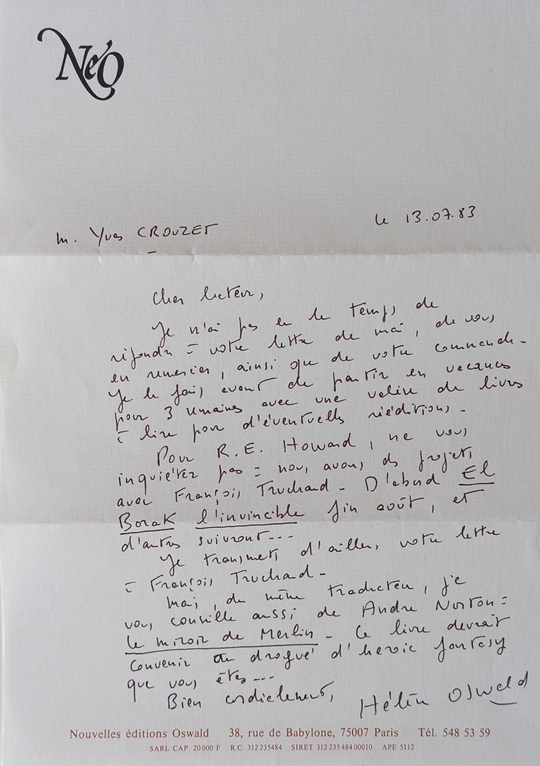 NéO
M. Yves CROUZET
le 13.07.83
Cher lecteur,
Je n'ai pas eu le temps de
répondre à votre lettre de mai, de vous
en remercier, ainsi que de votre commande.
Je le fais avant de partir en vacances
pour 3 semaines avec une valise de livres
à lire pour d'éventuelles rééditions.
Pour R.E. Howard, ne vous
inquiétez pas : nous avons des projets
avec François Truchaud. D'abord El
Borak l'invincible fin août, et
d'autres suivront...
Je transmets d'ailleurs votre lettre
à François Truchaud.
Mais, du même traducteur, je
vous conseille aussi de Andre Norton :
le miroir de Merlin. Ce livre devrait
convenir au drogué d'heroic fantasy
que vous êtes...
Bien cordialement,
Hélène Oswald
Nouvelles éditions Oswald 38, rue de Babylone, 75007 Paris Tél. 548 53 59
SARL CAP. 20000 F R.C. 312235484 SIRET 312 235 484 00010 APE 5112